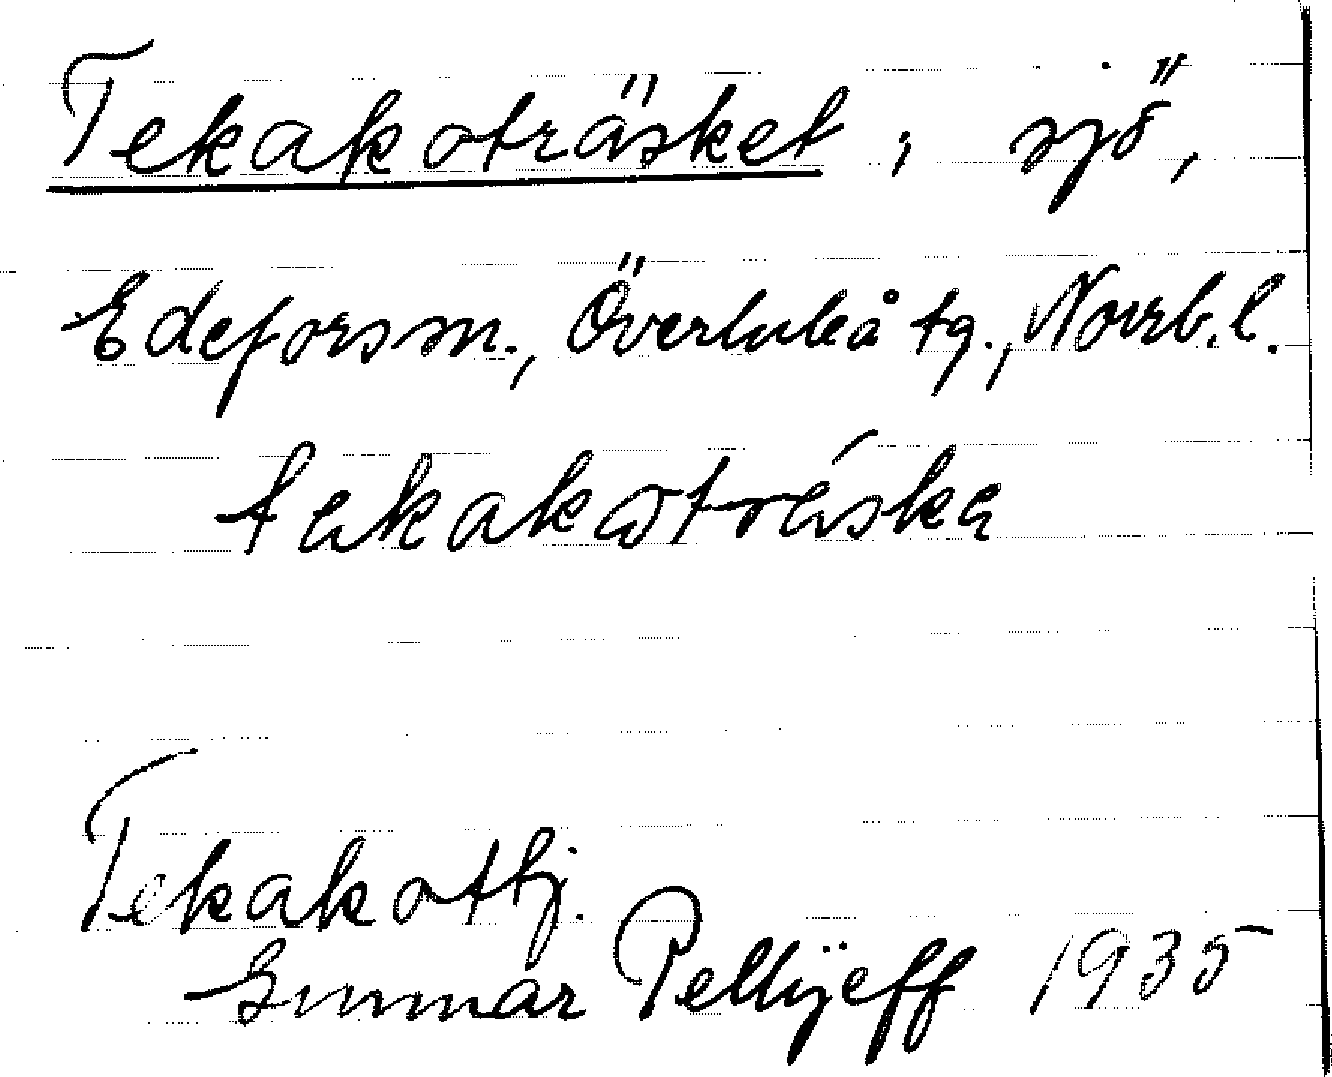 Tekakoträsket, sjö,
Edefors sn., Överluleå tg., Norrb. l.
Tekakottj.
Gunnar Pellijeff 1935